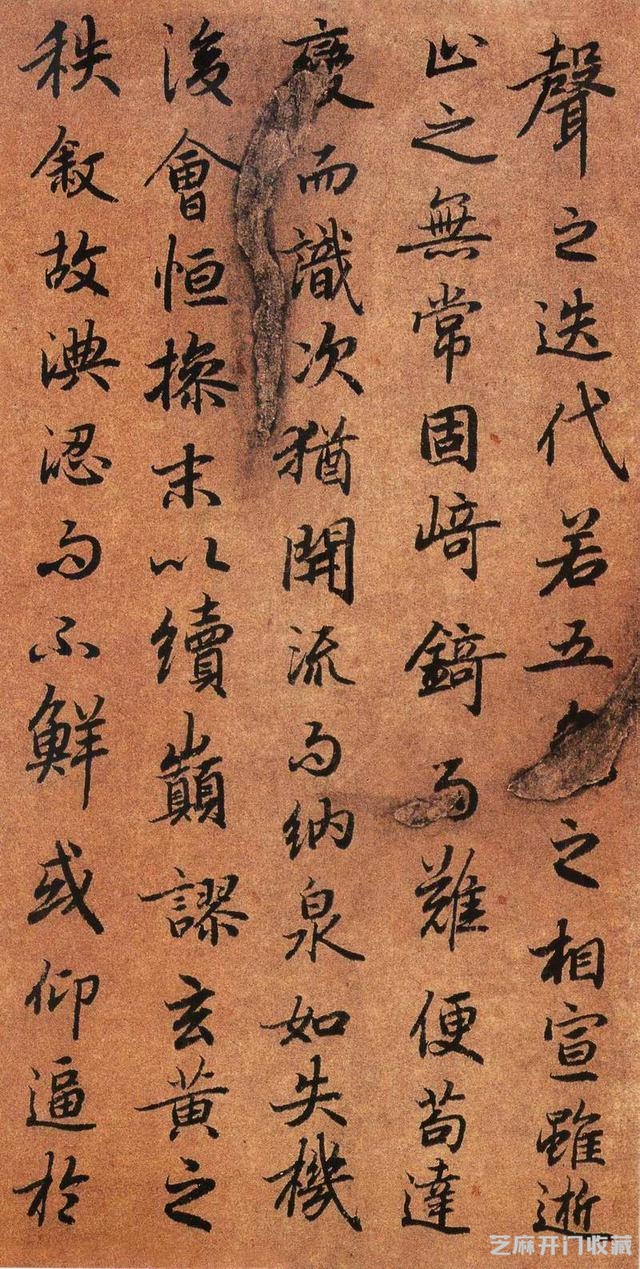 聲之迭代若五之相宣雖逝
止之無常固崎錡而難便苟達
變而識次猶開流而納泉如失機
後會恒操末以續巔謬玄黃之
秩敘故淟涊而不鮮或仰逼於
芝麻开门收藏